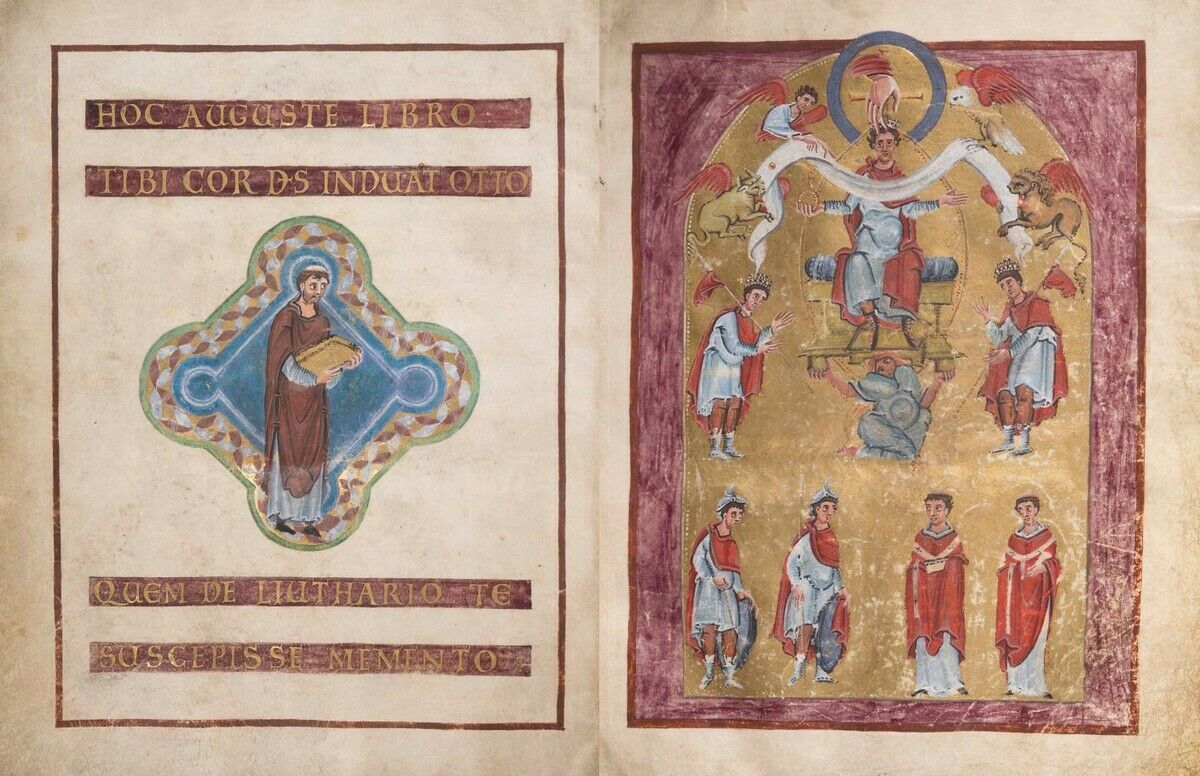 HOC AUGUSTE LIBRO
TIBI COR D·S INDUAT OTTO
QUEM DE LIUTHARIO TE
SUSCEPISSE MEMENTO